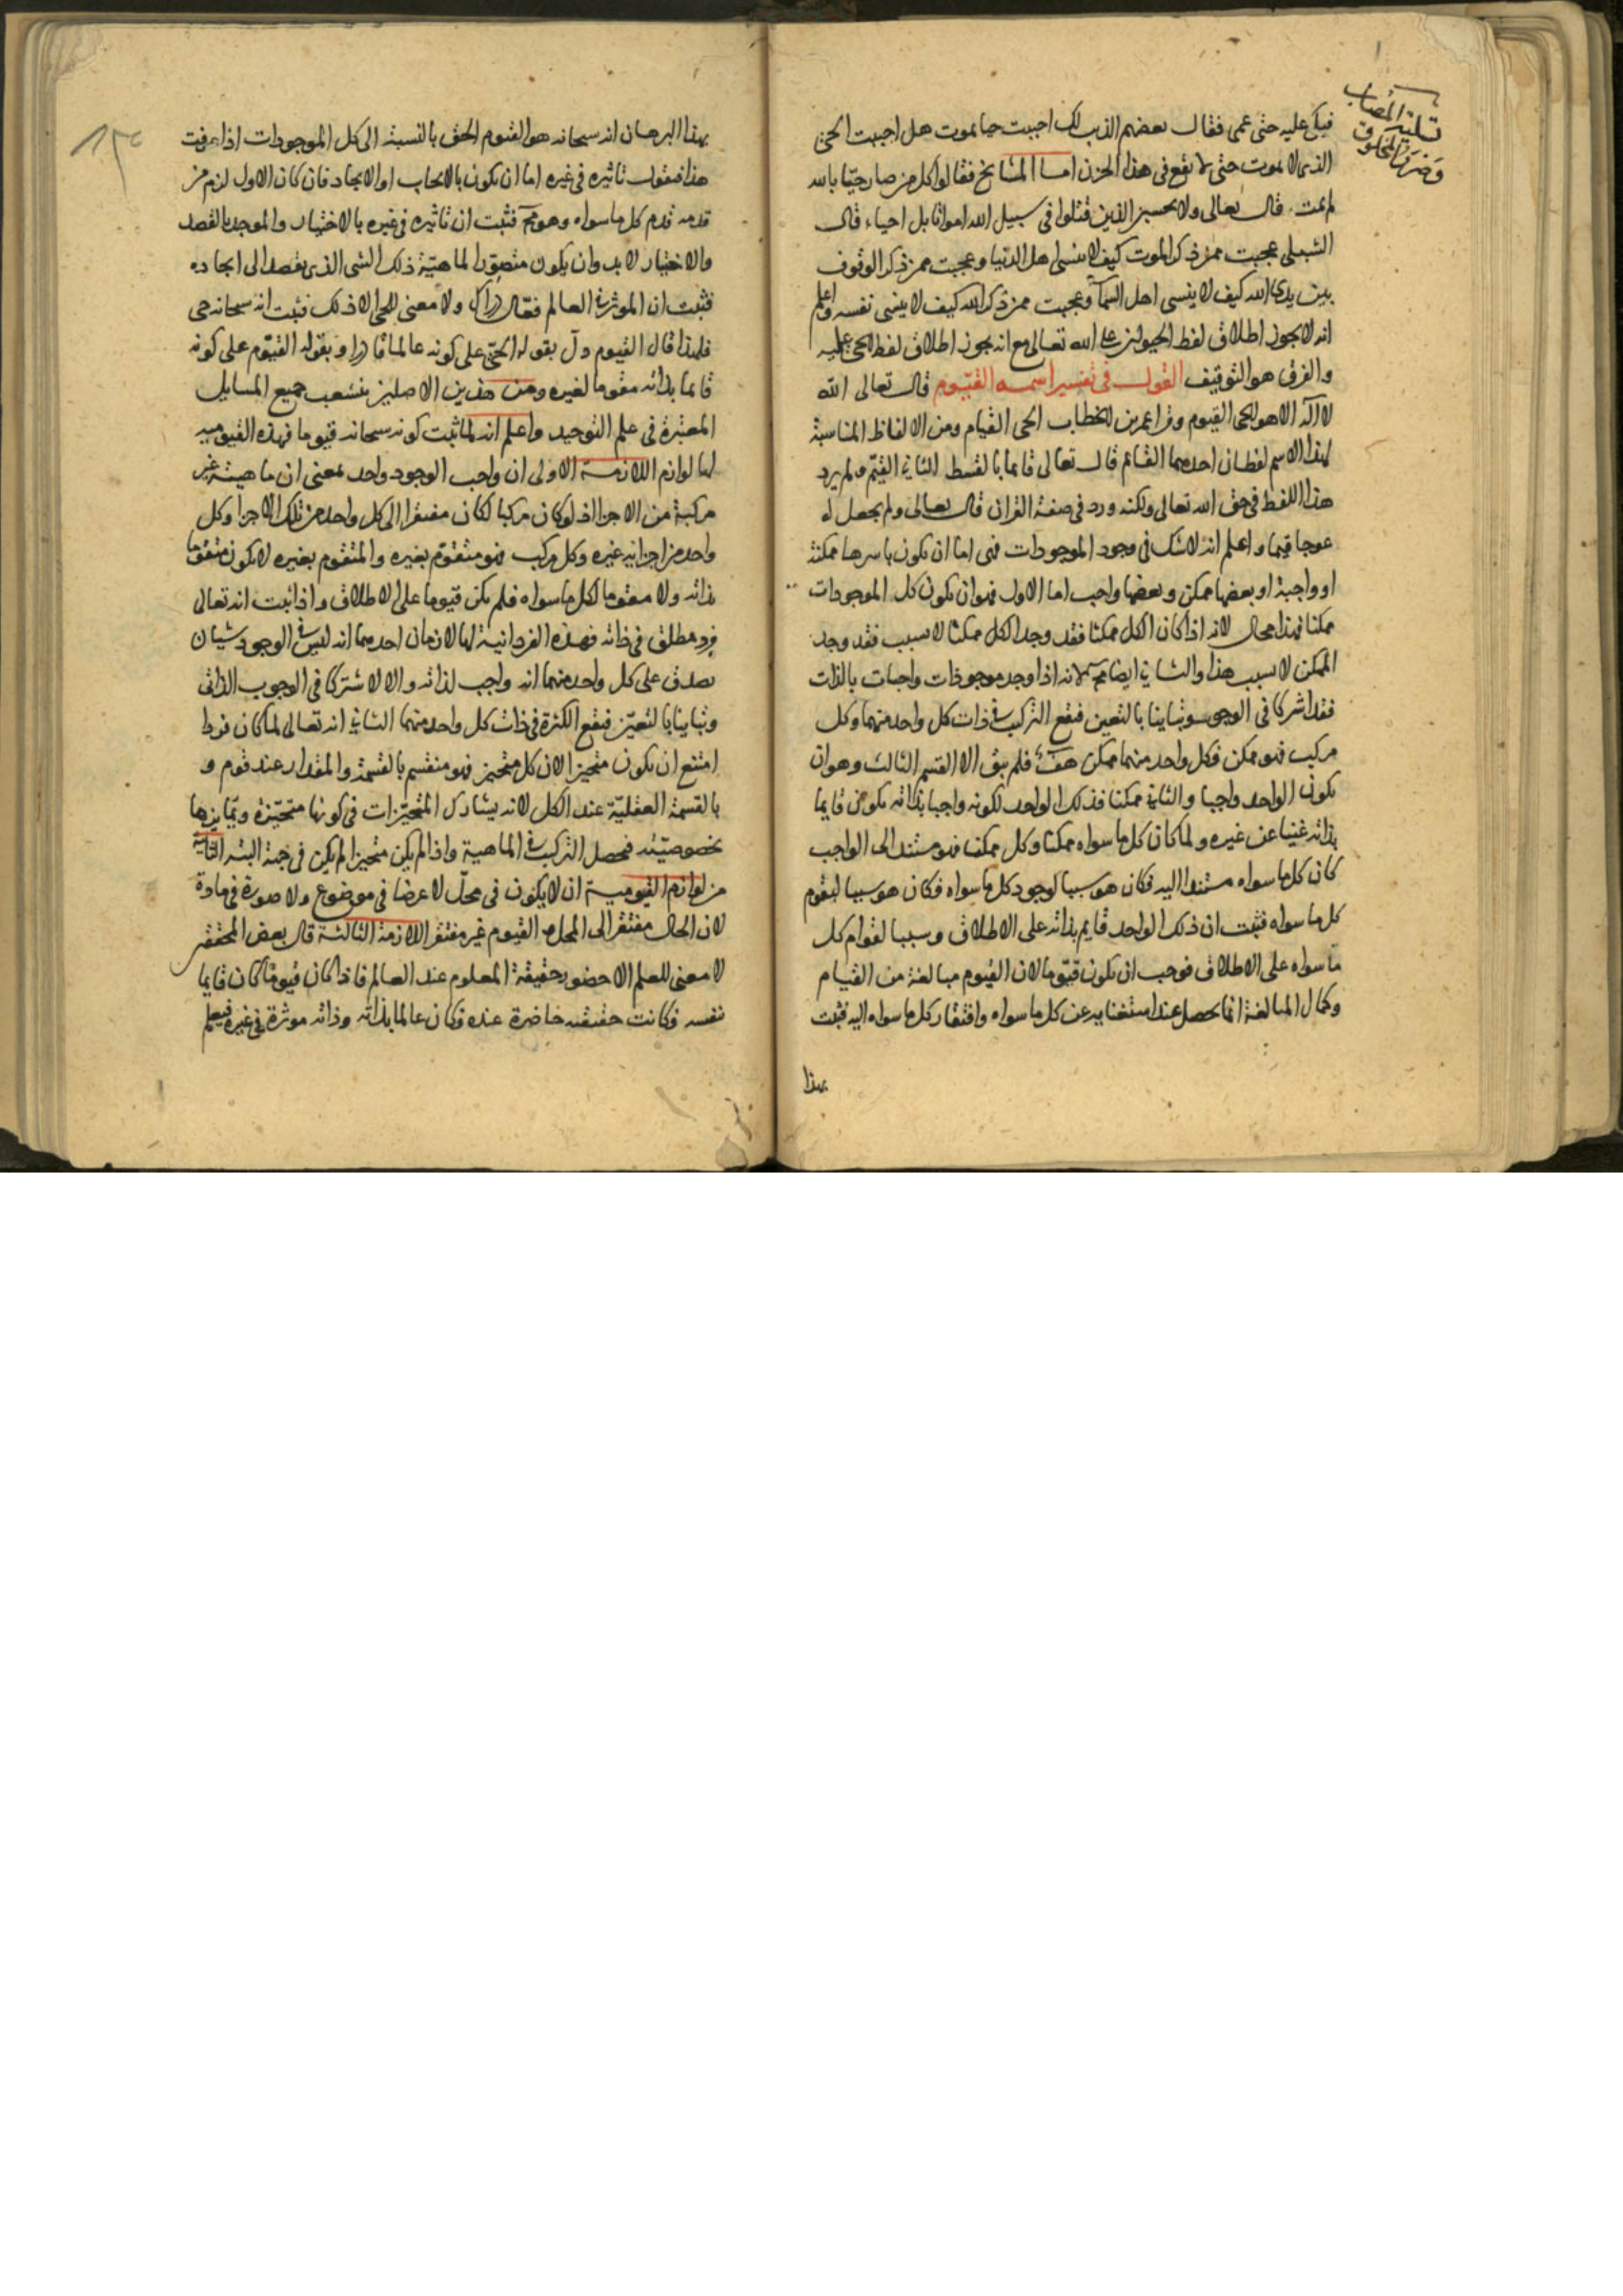 تسلية المصاب
فبكى عليه حتى عمى فقال بعضهم الذنب لك احببت حيا يموت هل احببت الحى
الذى لا يموت حتى لا تقع فى هذا الحزن اما المشايخ فقالوا كل من صار حيّا بالله
لم يمت قال تعالى ولا تحسبن الذين قتلوا فى سبيل الله امواتا بل احياء قال
الشبلى عجبت ممن ذكر الموت كيف لا ينسى اهل الدنيا وعجبت ممن ذكر الوقوف
بين يدى الله كيف لا ينسى اهل السمآ وعجبت ممن ذكر الله كيف لا ينسى نفسه واعلم
انه لا يجوز اطلاق لفظ الحيوان على الله تعالى مع انه يجوز اطلاق لفظ الحى عليه
والفرق هو التوقيف القول فى تفسير اسمه القيّوم قال تعالى الله
لا اله الا هو الحى القيوم وقرا عمر بن الخطاب الحى القيام ومن الالفاظ المناسبة
لهذا الاسم لفظان احدهما القائم قال تعالى قائما بالقسط الثانى القيّم ولم يرد
هذا اللفظ فى حق الله تعالى ولكنه ورد فى صفة القران قال تعالى ولم يجعل له
عوجا قيما واعلم انه لا شك فى وجود الموجودات فهى اما ان تكون باسرها ممكنة
او واجبة او بعضها ممكن وبعضها واجب اما الاول فهو ان تكون كل الموجودات
ممكنا فهذا محال لانه اذا كان الكل ممكنا فقد وجد الكل ممكنا لا سبب فقد وجد
الممكن لا بسبب هذا والثانى ايضا مح لانه اذا وجد موجودات واجبات بالذات
فقد اشتركا فى الوجوب وتباينا بالتعين فيقع التركيب فى ذات كل واحد منهما وكل
مركب فهو ممكن فكل واحد منهما ممكن هف فلم يبق الا القسم الثالث وهو ان
يكون الواحد واجبا والثانى ممكنا فذلك الواحد لكونه واجبا بذاته يكون قايما
بذاته غنيا عن غيره ولما كان كل ما سواه ممكنا وكل ممكن فهو مستند الى الواجب
كان كل ما سواه مستندا اليه فكان هو سببا لوجود كل ما سواه فكان هو سببا لتقوم
كل ما سواه فثبت ان ذلك الواحد قايم بذاته على الاطلاق وسببا لقوام كل
ما سواه على الاطلاق فوجب ان يكون قيّوما لان القيوم مبالغة من القيام
وكمال المبالغة انما يحصل عند استغنايه عن كل ما سواه وافتقار كل ما سواه اليه فثبت
بهذا
بهذا البرهان انه سبحانه هو القيوم الحق بالنسبة الى كل الموجودات اذا عرفت
هذا فنقول تاثيره فى غيره اما ان يكون بالايجاب او الايجاد فان كان الاول لزم من
قدمه قدم كل ما سواه وهو مح فثبت ان تاثيره فى غيره بالاختيار والموجد بالقصد
والاختيار لا بد وان يكون متصوّرا لماهيّة ذلك الشى الذى يقصد الى ايجاده
فثبت ان الموثر فى العالم فعّال درّاك ولا معنى للحى الا ذلك فثبت انه سبحانه حى
فلهذا قال القيوم دلّ بقوله الحىّ على كونه عالما قادرا وبقوله القيّوم على كونه
قائما بذاته مقوما لغيره ومن هذين الاصلين يتشعب جميع المسايل
المعتبرة فى علم التوحيد واعلم انه لما ثبت كونه سبحانه قيوما فهذه القيوميه
لها لوازم اللازمة الاولى ان واجب الوجود واحد بمعنى ان ماهيته غير
مركبة من الاجزا اذ لو كان مركبا لكان مفتقرا الى كل واحد من تلك الاجزا وكل
واحد من اجزائه غيره وكل مركب فهو متقوّم بغيره والمتقوم بغيره لا يكون متقوّما
بذاته ولا مقوما لكل ما سواه فلم يكن قيوما على الاطلاق واذا ثبت انه تعالى
فرد مطلق فى ذاته فهذه الفردانية لها لازمان احدهما انه ليس فى الوجود شيان
يصدق على كل واحد منهما انه واجب لذاته والا لاشتركا فى الوجوب الذاتى
وتباينا بالتعيّن فيقع الكثرة فى ذات كل واحد منهما الثانى انه تعالى لما كان فردا
امتنع ان يكون متحيزا لان كل متحيز فهو منقسم بالقسمة والمقدار عند قوم و
بالقسمة العقليّة عند الكل لانه يشارك المتحيّزات فى كونها متحيّزة ويمايزها
بخصوصيّته فيحصل التركيب فى الماهية واذا لم يكن متحيزا لم يكن فى جهة البته الثانية
من لوازم القيومية ان لا يكون فى محلّ لا عرضا فى موضوع ولا صورة فى مادة
لان الحال مفتقر الى المحل والقيوم غير مفتقر اللازمة الثالثة قال بعض المحققين
لا معنى للعلم الا حضور حقيقة المعلوم عند العالم فاذا كان قيوما كان قايما
بنفسه فكانت حقيقته حاضرة عنده فكان عالما بذاته وذاته موثرة فى غيره فيعلم